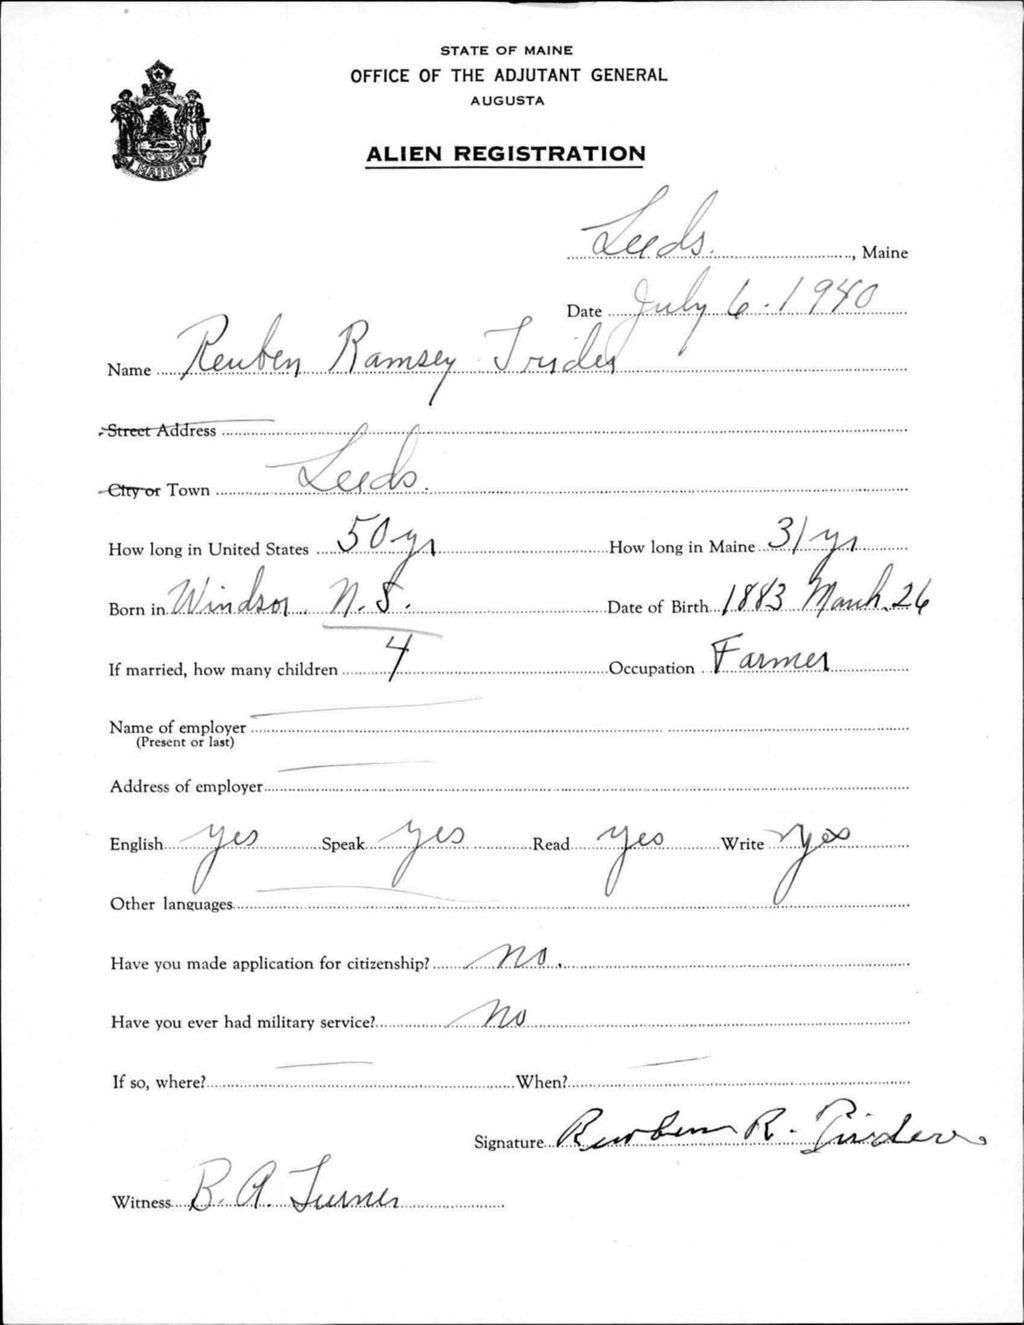 STATE OF MAINE
OFFICE OF THE ADJUTANT GENERAL
AUGUSTA
MAINE
ALIEN REGISTRATION
Leeds, Maine
Date July 6 - 1940
Name Reuben Ramsey Trider
Street Address
City or Town Leeds.
How long in United States 50 yr How long in Maine 31 yr
Born in Windsor. N.S. Date of Birth 1883 March 26
If married, how many children 4 Occupation Farmer
Name of employer
(Present or last)
Address of employer
English yes Speak yes Read yes Write yes
Other languages
Have you made application for citizenship? no.
Have you ever had military service? no
If so, where? When?
Signature Reuben R. Trider
Witness B. A. Turner